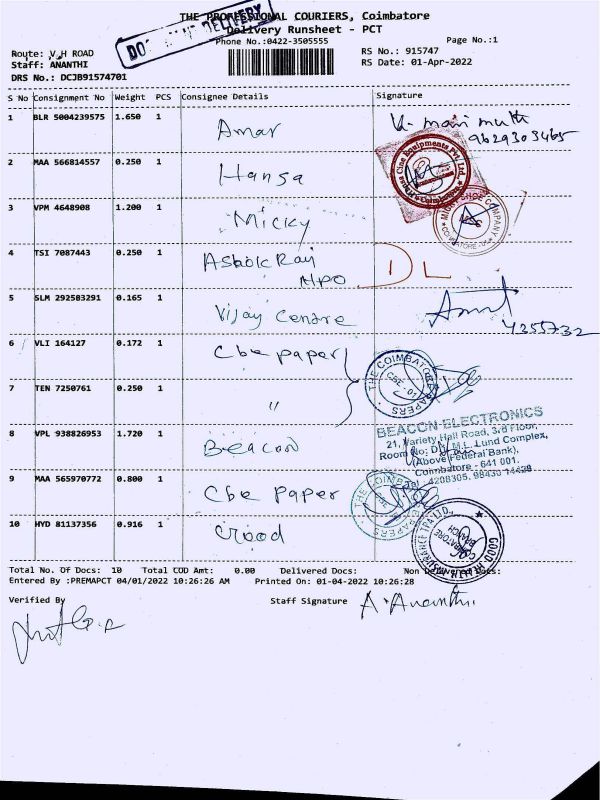 THE PROFESSIONAL COURIERS, Coimbatore
Delivery Runsheet - PCT
Phone No.:0422-3505555
Page No.:1
Route: V.H ROAD
RS No.: 915747
Staff: ANANTHI
RS Date: 01-Apr-2022
DRS No.: DCJB91574701
S No Consignment No Weight PCS Consignee Details Signature
1 BLR 5004239575 1.650 1 Amar
9629303465
2 MAA 566814557 0.250 1 Hansa
3 VPM 4648908 1.200 1 Micky
4 TSI 7087443 0.250 1 Ashok Raj DL
5 SLM 292583291 0.165 1 Vijay Centre
4255732
6 VLI 164127 0.172 1 Cbe paper
7 TEN 7250761 0.250 1 "
8 VPL 938826953 1.720 1 Beacon
BEACON ELECTRONICS
21, Variety Hall Road, 3rd Floor,
M.L. Lund Complex,
(Above Federal Bank),
Coimbatore - 641 001.
9 MAA 565970772 0.800 1 Cbe Paper
10 HYD 81137356 0.916 1 Crood
Total No. Of Docs: 10 Total COD Amt: 0.00 Delivered Docs: Non Delivered Docs:
Entered By :PREMAPCT 04/01/2022 10:26:26 AM Printed On: 01-04-2022 10:26:28
Verified By
Staff Signature A. Ananthi